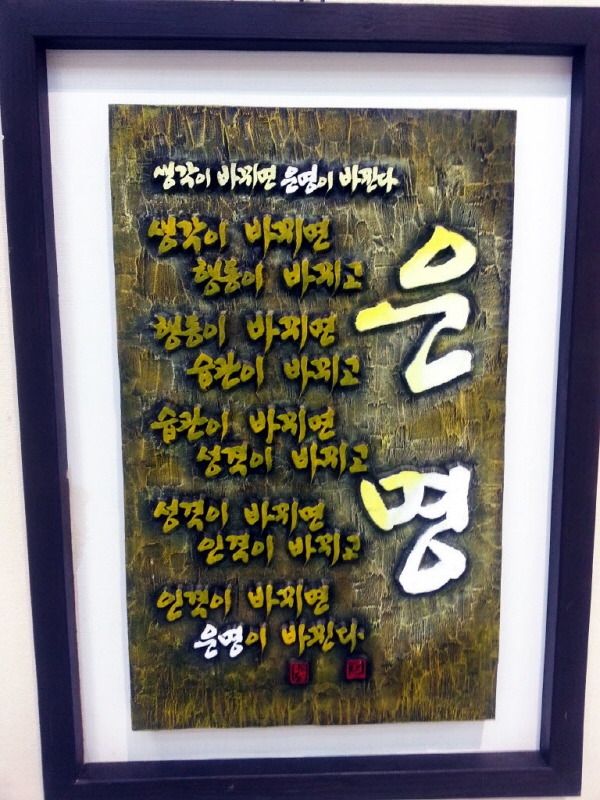 생각이 바뀌면 운명이 바뀐다
운명
생각이 바뀌면
행동이 바뀌고
행동이 바뀌면
습관이 바뀌고
습관이 바뀌면
성격이 바뀌고
성격이 바뀌면
인격이 바뀌고
인격이 바뀌면
운명이 바뀐다.